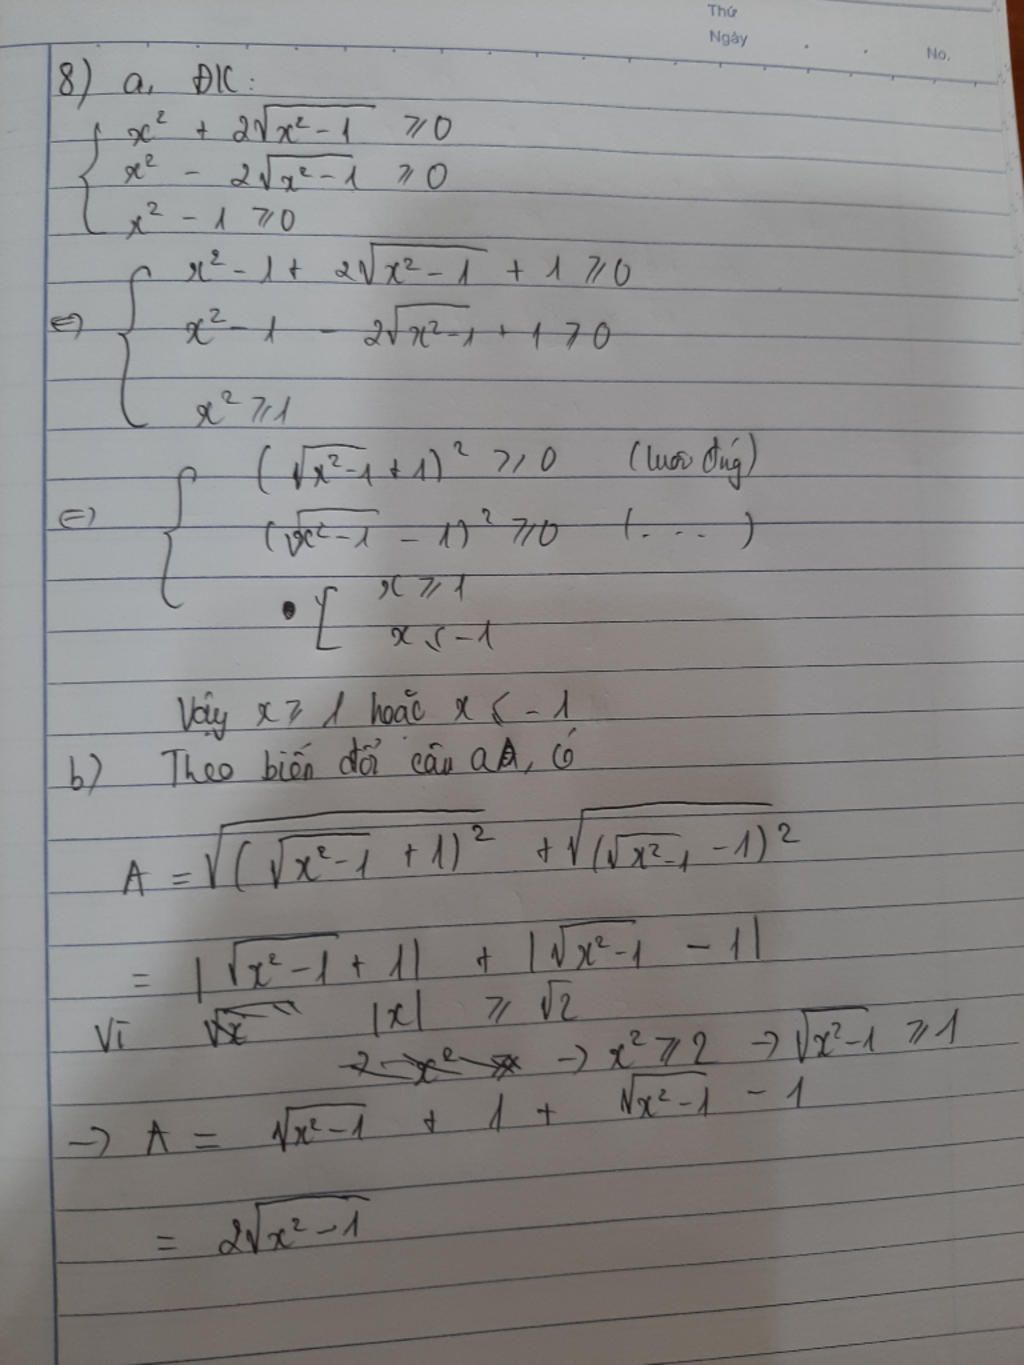 Thứ
Ngày
No.
8) a, ĐK:
x² + 2√(x² - 1) ≥ 0
x² - 2√(x² - 1) ≥ 0
x² - 1 ≥ 0
⇔ x² - 1 + 2√(x² - 1) + 1 ≥ 0
x² - 1 - 2√(x² - 1) + 1 ≥ 0
x² ≥ 1
⇔ (√(x² - 1) + 1)² ≥ 0 (luôn đúng)
(√(x² - 1) - 1)² ≥ 0 (...)
[ x ≥ 1
x ≤ -1
Vậy x ≥ 1 hoặc x ≤ -1
b) Theo biến đổi câu a, có
A = √((√(x² - 1) + 1)²) + √((√(x² - 1) - 1)²)
= |√(x² - 1) + 1| + |√(x² - 1) - 1|
Vì |x| ≥ √2
→ x² ≥ 2 → √(x² - 1) ≥ 1
→ A = √(x² - 1) + 1 + √(x² - 1) - 1
= 2√(x² - 1)